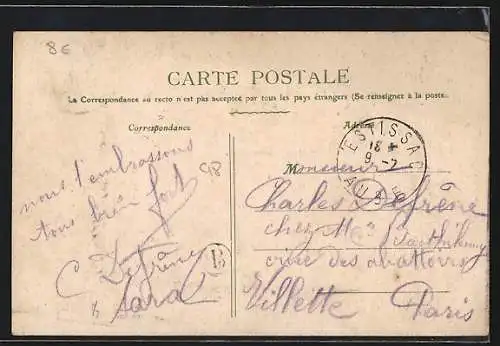 8€
CARTE POSTALE
La Correspondance au recto n'est pas acceptée par tous les pays étrangers (Se renseigner à la poste.
Correspondance
Adresse
ESTISSAC
18
9 - 2
AUBE
nous t'embrassons
tous bien fort
98
C Defrêne
Sara
B
Monsieur
Charles Defrêne
chez Me
des abattoirs
Villette Paris